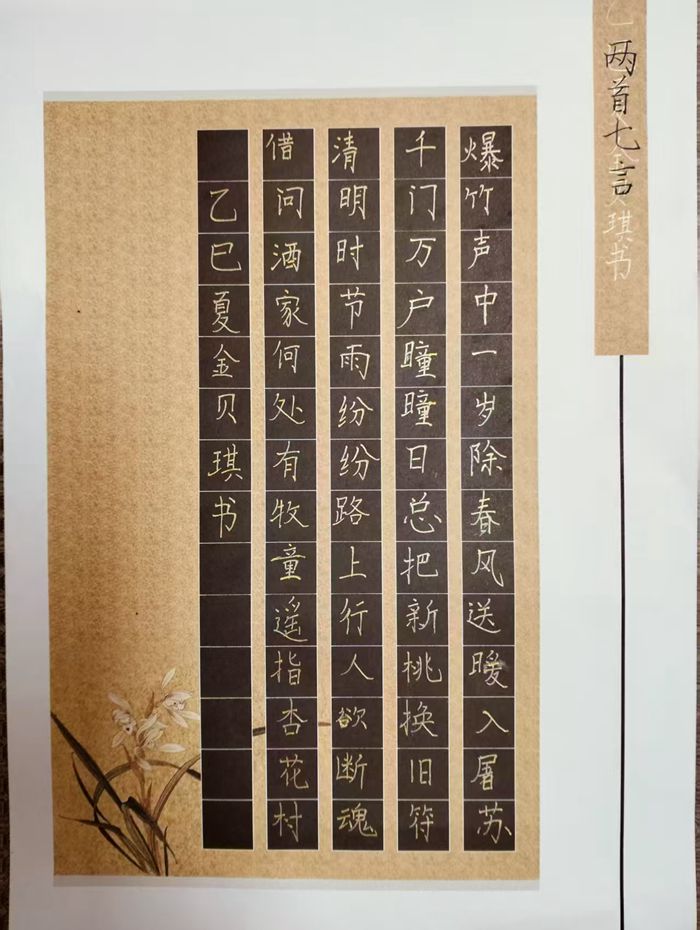 两首七言
乙
琪书
爆竹声中一岁除春风送暖入屠苏
千门万户瞳瞳日总把新桃换旧符
清明时节雨纷纷路上行人欲断魂
借问酒家何处有牧童遥指杏花村
乙巳夏金贝琪书